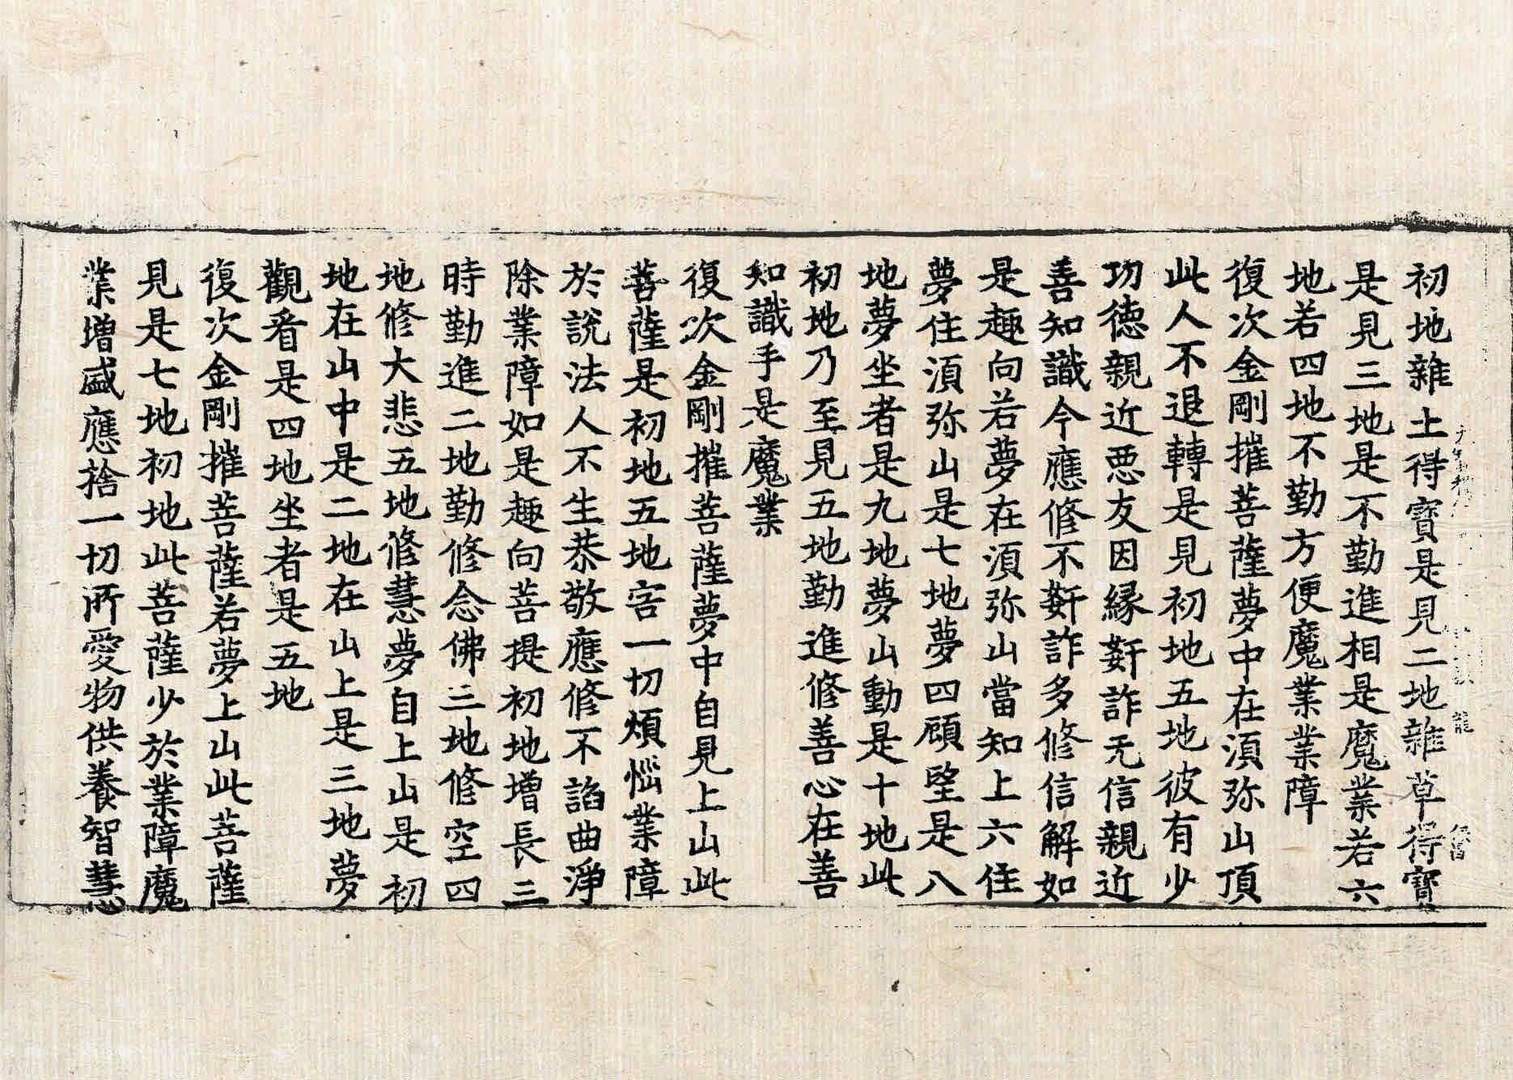 初地雜土得寶是見二地雜草得寶
是見三地是不勤進相是魔業若六
地若四地不勤方便魔業業障
復次金剛摧菩薩夢中在湏弥山頂
此人不退轉是見初地五地彼有少
功德親近惡友因緣姧詐无信親近
善知識今應修不姧詐多修信解如
是趣向若夢在湏弥山當知上六住
夢住湏弥山是七地夢四顧望是八
地夢坐者是九地夢山動是十地此
初地乃至見五地勤進修善心在善
知識手是魔業
復次金剛摧菩薩夢中自見上山此
菩薩是初地五地害一切煩惱業障
於說法人不生恭敬應修不諂曲淨
除業障如是趣向菩提初地增長三
時勤進二地勤修念佛三地修空四
地修大悲五地修慧夢自上山是初
地在山中是二地在山上是三地夢
觀看是四地坐者是五地
復次金剛摧菩薩若夢上山此菩薩
見是七地初地此菩薩少於業障魔
業增盛應捨一切所愛物供養智慧